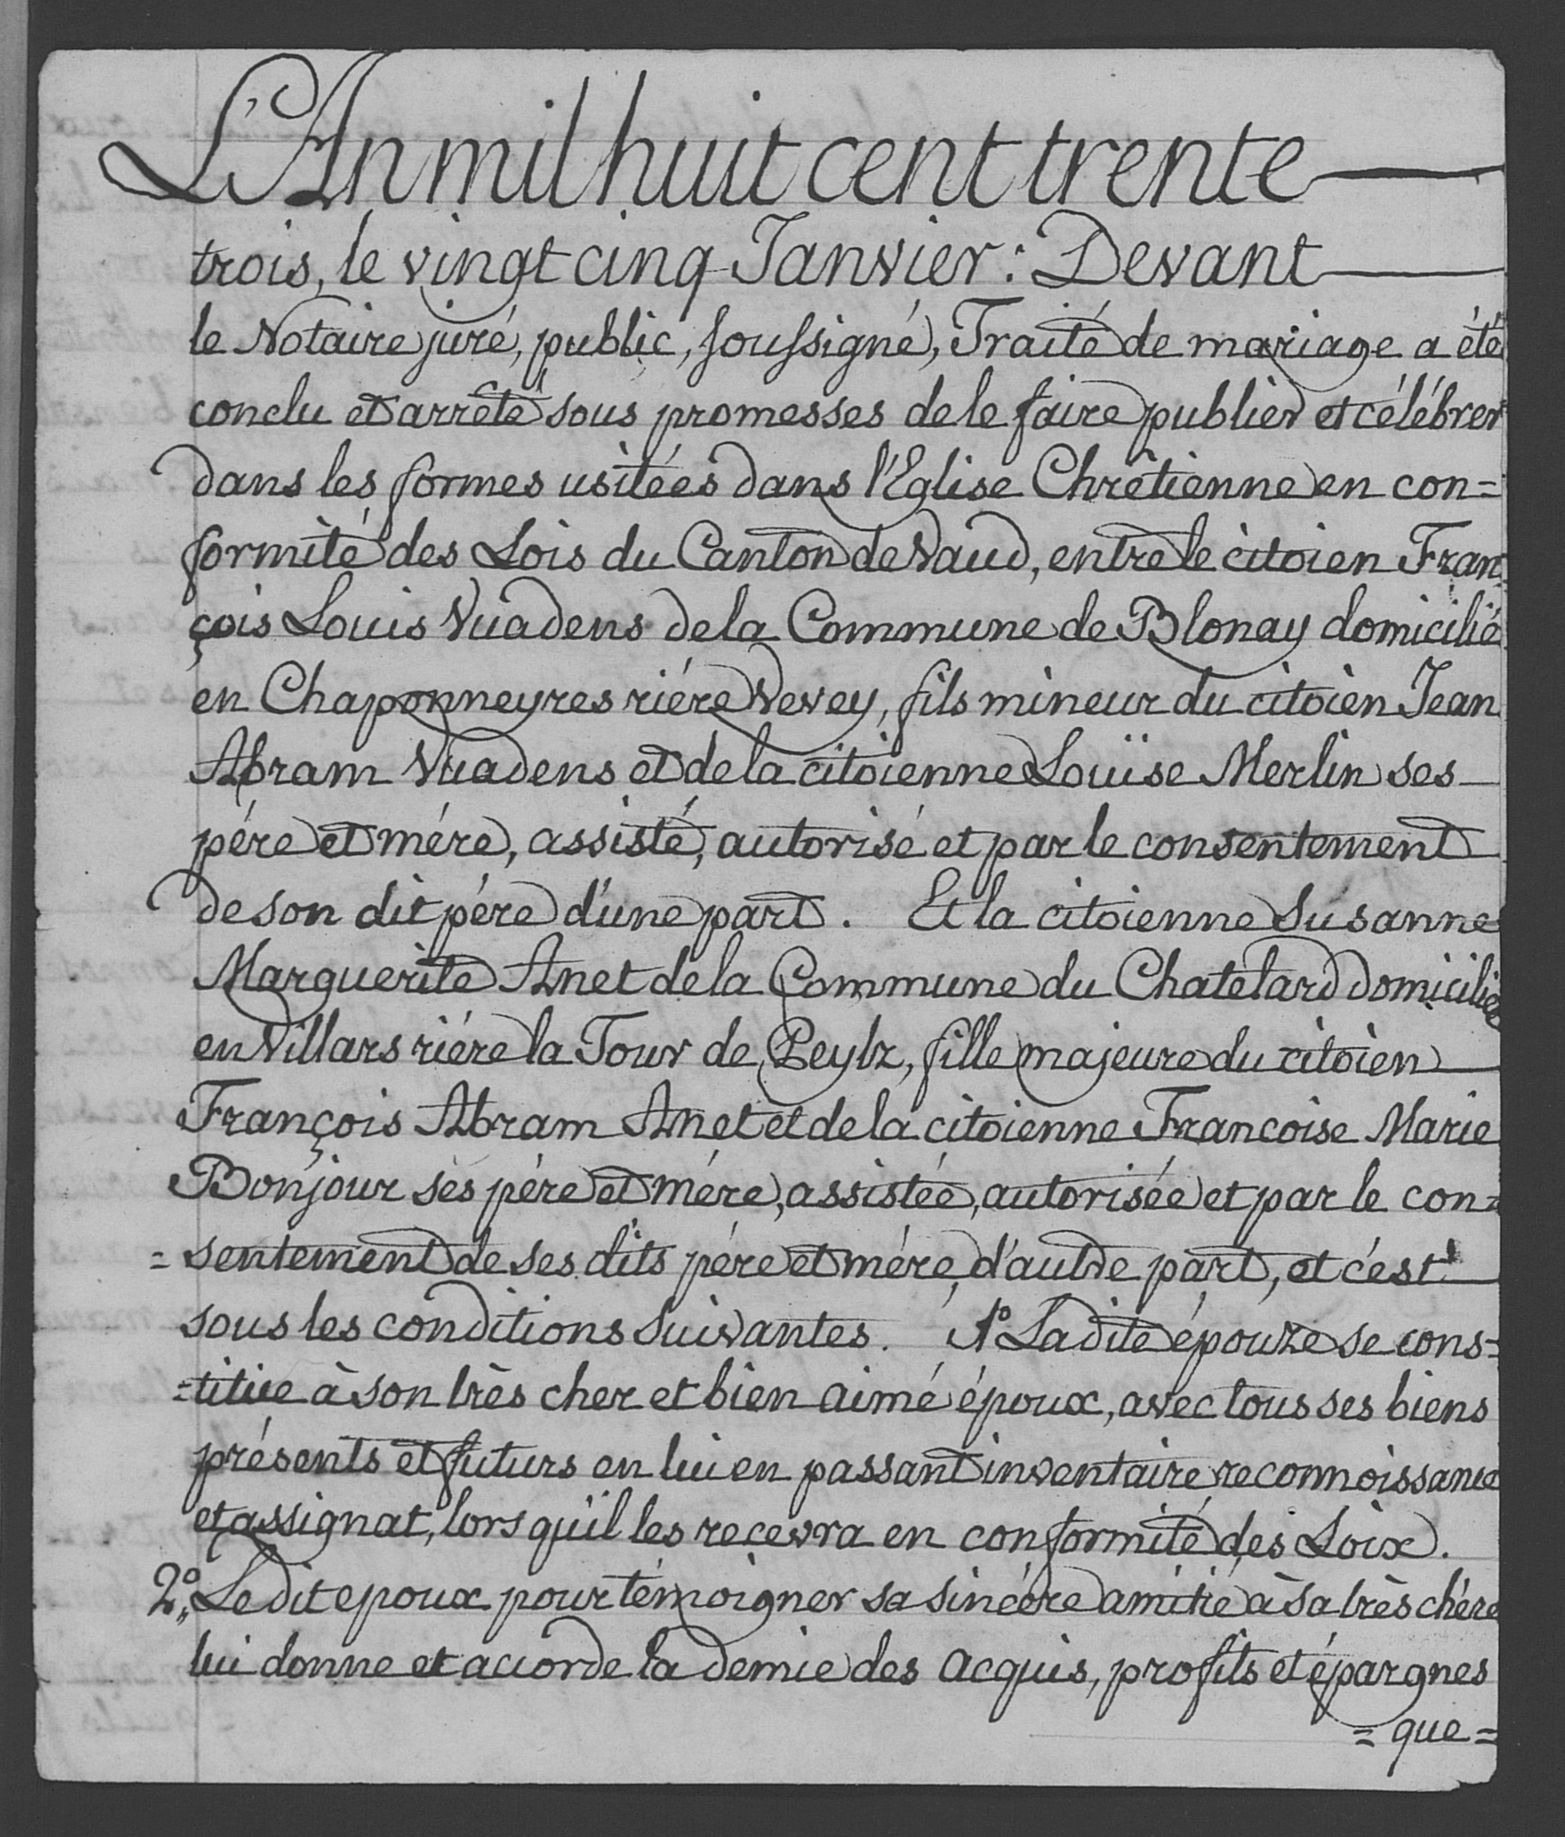 L'An mil huit cent trente
trois, le vingt cinq Janvier: Devant
le Notaire juré, public, soussigné, Traité de mariage a été
conclu et arrêté sous promesses de le faire publier et célébrer
dans les formes usitées dans l'Eglise Chrétienne en con=
formité des Lois du Canton de Vaud, entre le citoien Fran
çois Louis Vuadens de la Commune de Blonay domicilié
en Chaponneyres riére Vevey, fils mineur du citoien Jean
Abram Vuadens et de la citoienne Louïse Merlin ses
pére et mére, assisté, autorisé et par le consentement
de son dit pére d'une part. Et la citoienne Susanne
Marguerite Anet de la Commune du Chatelard domicilié
en Villars riére la Tour de Peylz, fille majeure du citoien
François Abram Anet et de la citoienne Francoise Marie
Bonjour ses pére et mére, assistée, autorisée et par le con=
=sentement de ses dits pére et mére, d'autre part, et c'est
sous les conditions suivantes. 1° La dite épouze se cons=
=titue à son très cher et bien aimé époux, avec tous ses biens
présents et futurs en lui en passant inventaire reconnoissance
et assignat, lors qu'il les recevra en conformité des Loix.
2° Le dit epoux pour témoigner sa sincére amitié à sa très chére
lui donne et accorde la demie des acquis, profits et épargnes
= que =